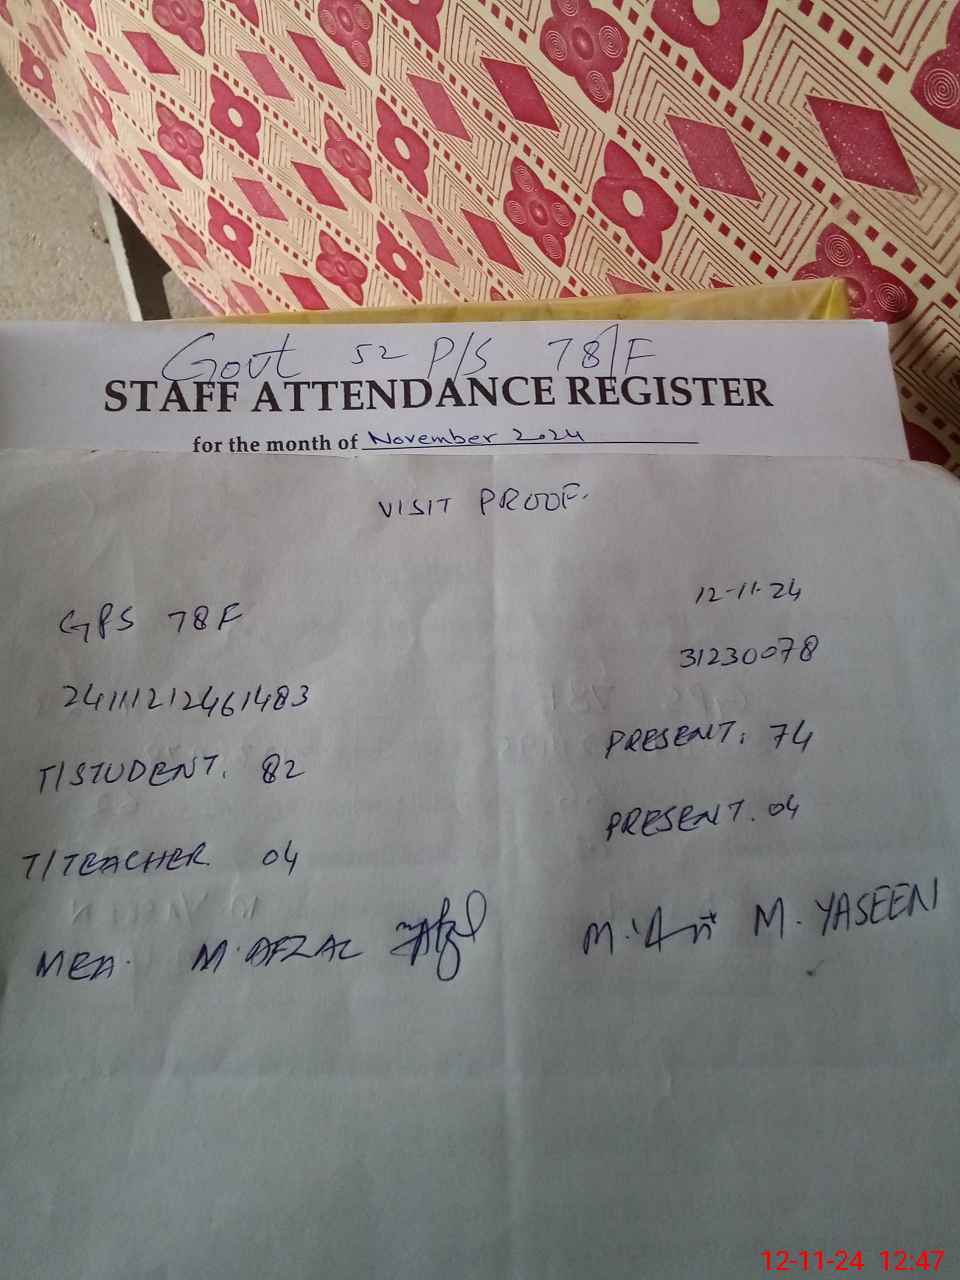 Govt 52 P/S 78/F
STAFF ATTENDANCE REGISTER
for the month of November 2024
VISIT PROOF.
12-11-24
GPS 78F
31230078
24111212461483
PRESENT: 74
T/STUDENT. 82
PRESENT. 04
T/TEACHER. 04
MEA. M. AFZAL M. YASEEN
12-11-24 12:47